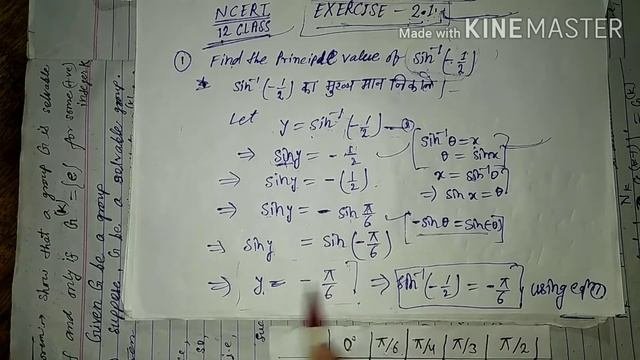 NCERT EXERCISE - 2.1
12 CLASS
Made with KINEMASTER
① Find the Principle value of sin⁻¹(-1/2)
* sin⁻¹(-1/2) का मुख्य मान निकालें
Let y = sin⁻¹(-1/2)
⇒ siny = -1/2
sin⁻¹θ = x
θ = sinx
⇒ siny = -(1/2)
x = sin⁻¹θ
⇒ sin x = θ
⇒ siny = -sin π/6
-sinθ = sin(-θ)
⇒ siny = sin(-π/6)
⇒ y = -π/6 ⇒ sin⁻¹(-1/2) = -π/6 using eqⁿ①
0° π/6 π/4 π/3 π/2
show that a group G is solvable
if and only if G⁽ᵏ⁾ = {e} for some (+ve)
integer k
Given G be a group
suppose, G be a solvable group.